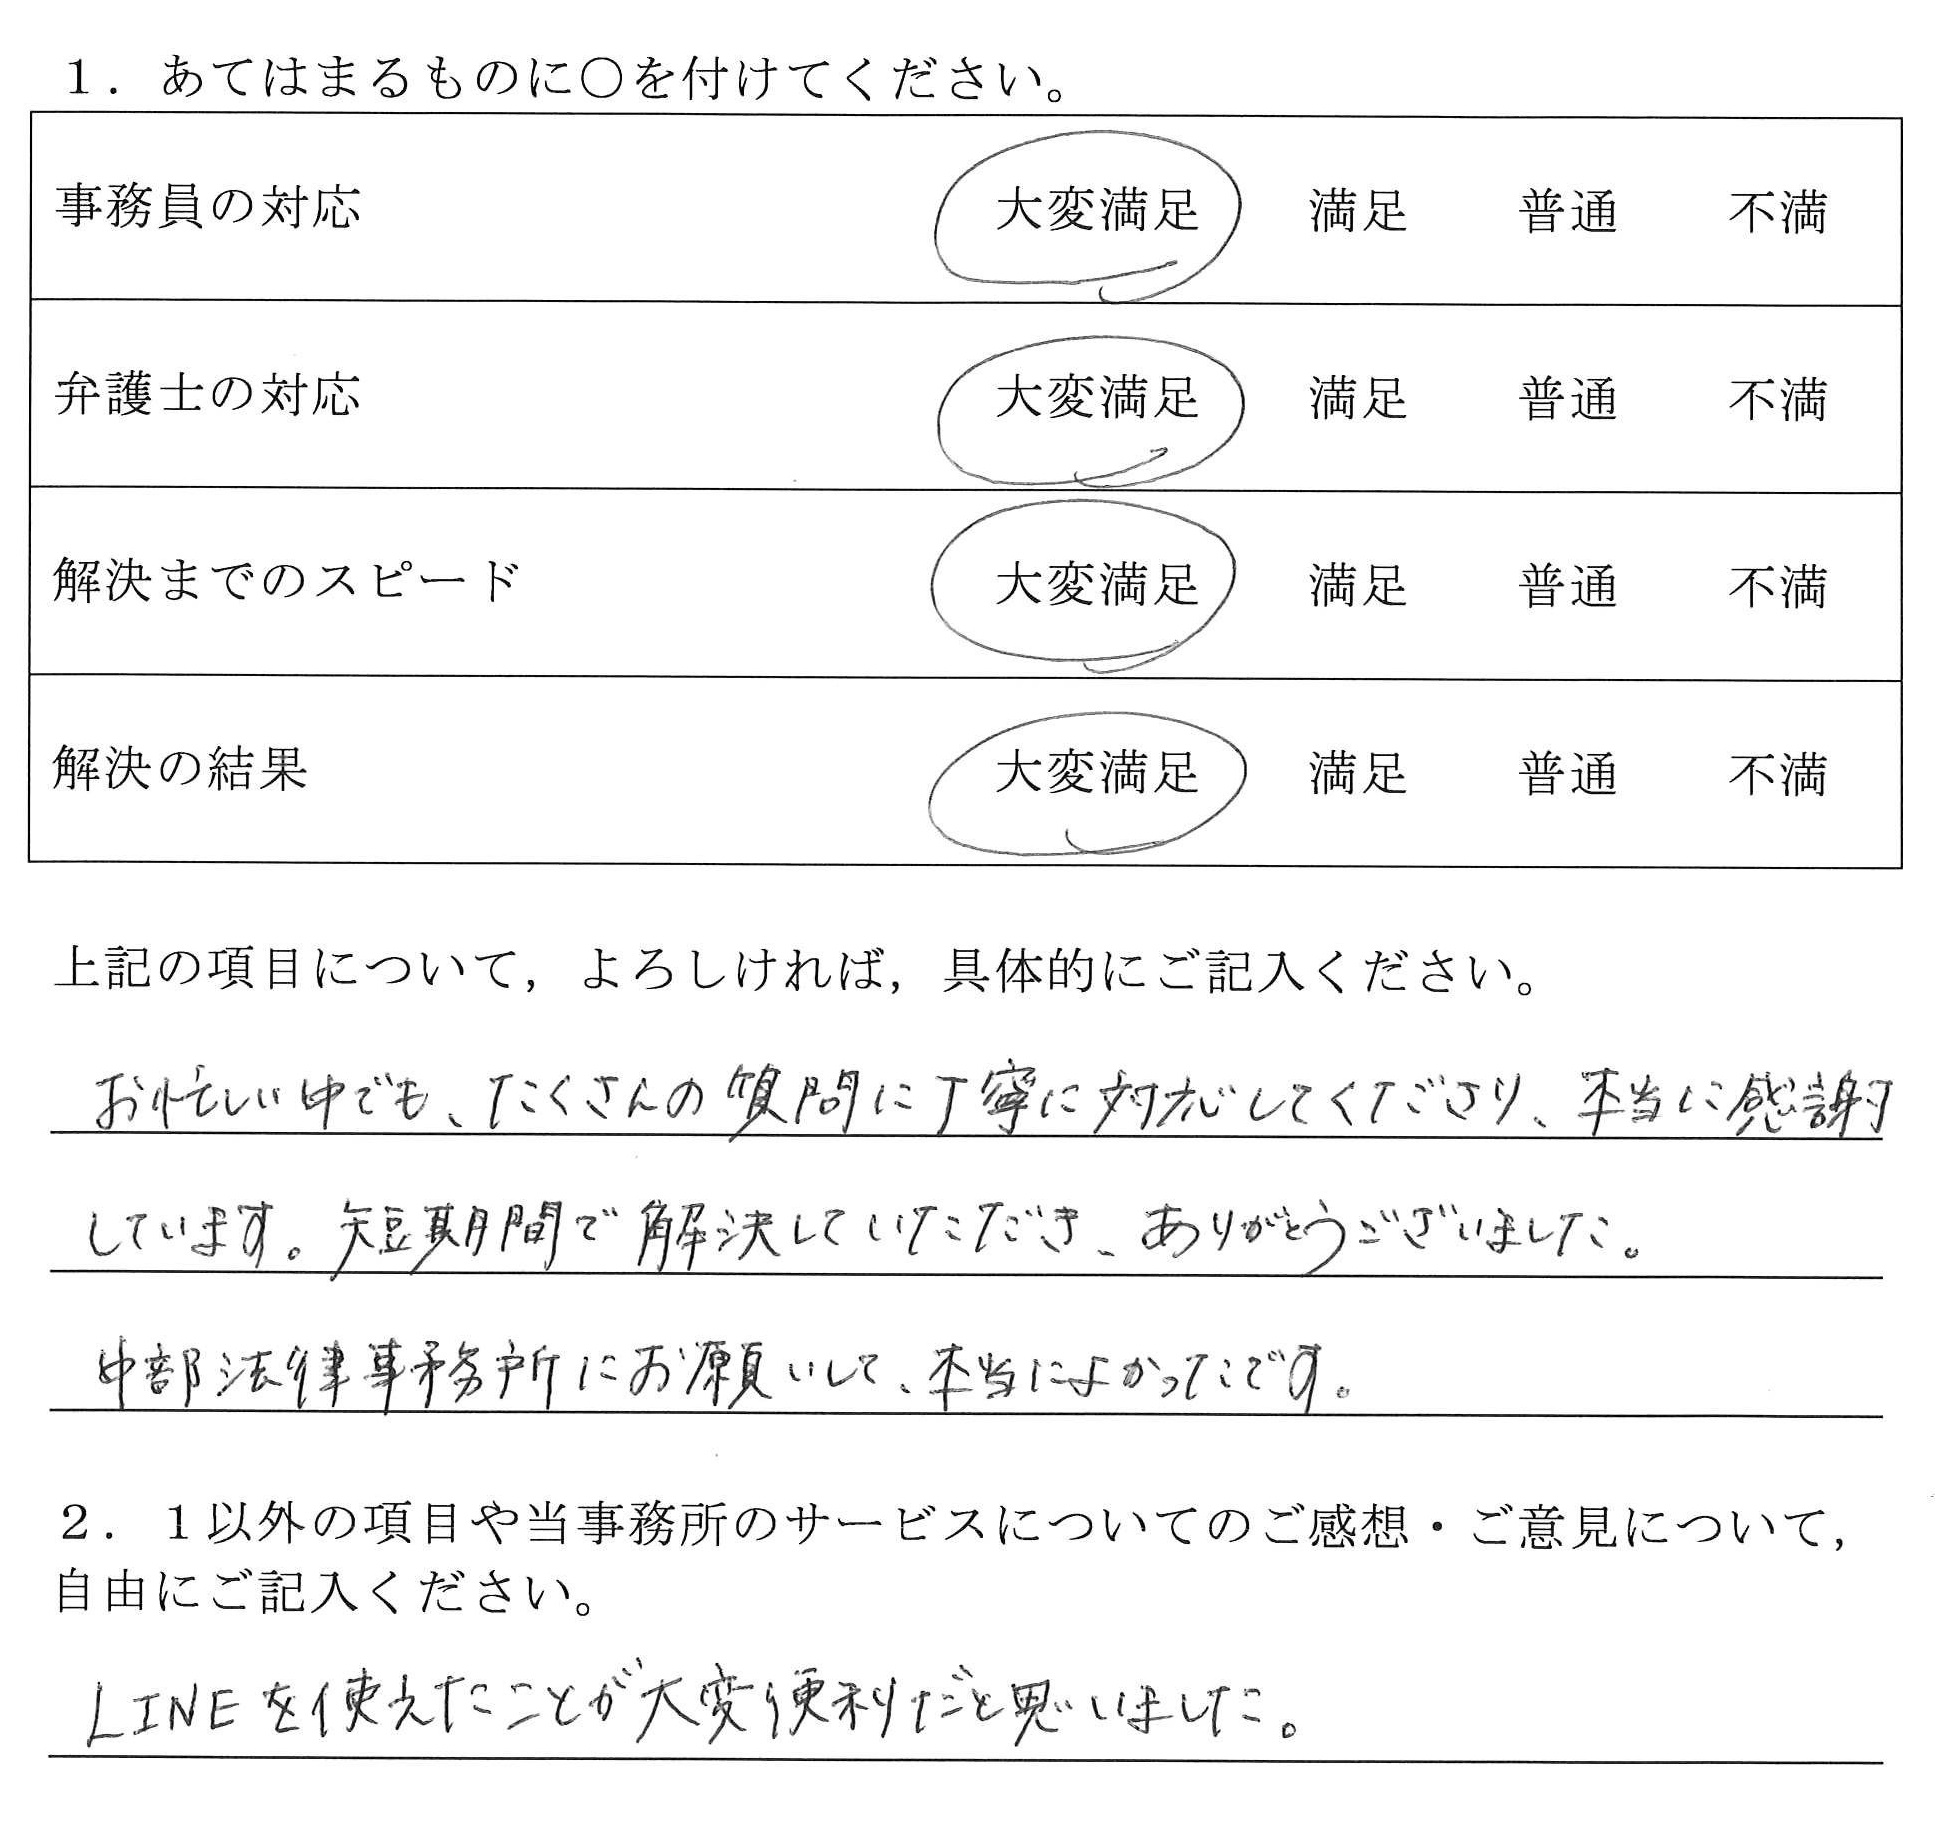 １．あてはまるものに○を付けてください。
事務員の対応　大変満足　満足　普通　不満
弁護士の対応　大変満足　満足　普通　不満
解決までのスピード　大変満足　満足　普通　不満
解決の結果　大変満足　満足　普通　不満
上記の項目について，よろしければ，具体的にご記入ください。
お忙しい中でも、たくさんの質問に丁寧に対応してくださり、本当に感謝
しています。短期間で解決していただき、ありがとうございました。
中部法律事務所にお願いして、本当によかったです。
２．１以外の項目や当事務所のサービスについてのご感想・ご意見について，
自由にご記入ください。
LINEを使えたことが大変便利だと思いました。